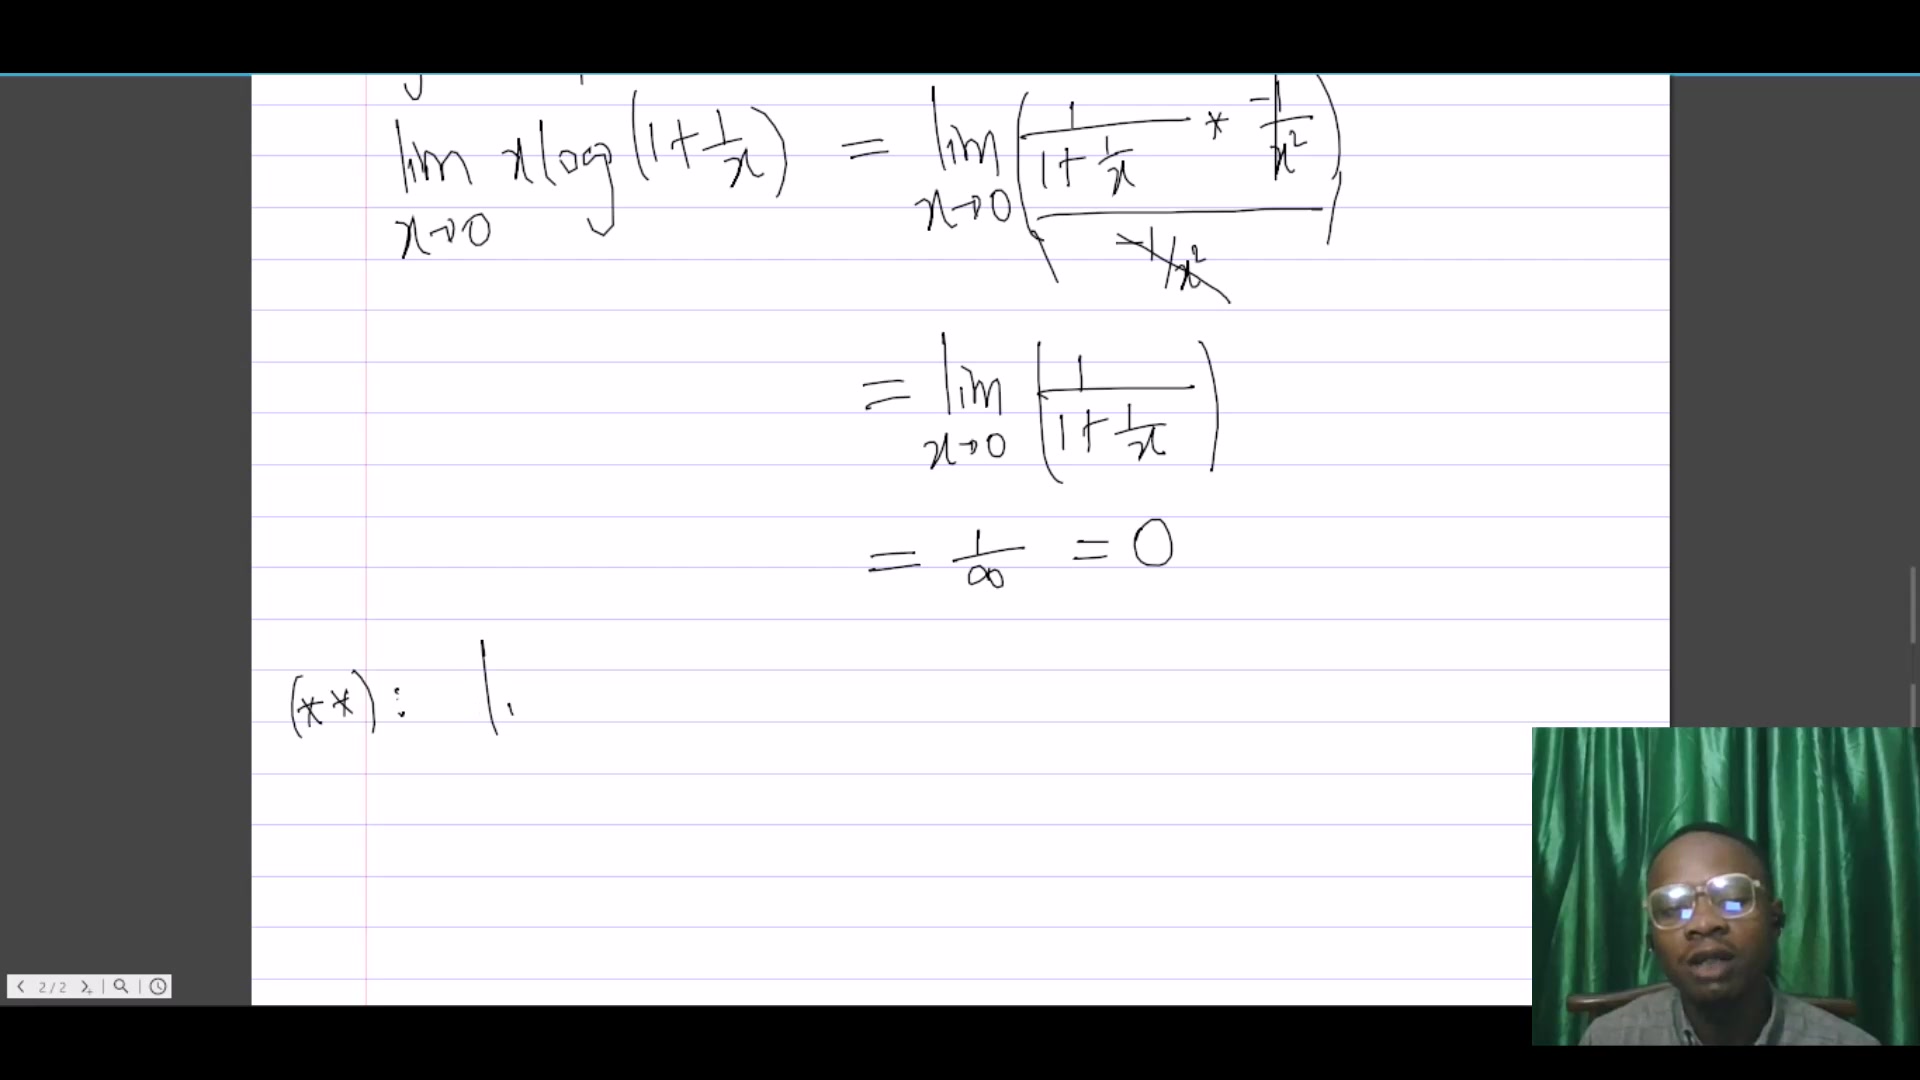 lim x→0 x log(1 + 1/x) = lim x→0 ((1/(1 + 1/x) * -1/x²) / (-1/x²))
= lim x→0 (1/(1 + 1/x))
= 1/∞ = 0
(**): l.
2/2